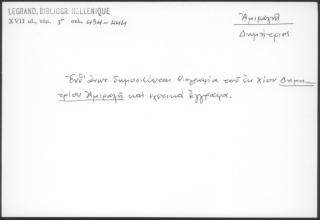 LEGRAND, BIBLIOGR. HELLENIQUE
XVII αἰ, τόμ. 5 σελ. 434-444
Ἀμιραλῆ
Δημήτριος
Ἐνθ' ἀνωτ. δημοσιεύεται βιογραφία τοῦ ἐκ Χίου Δημη-
τρίου Ἀμιραλῆ καὶ σχετικὰ ἔγγραφα.